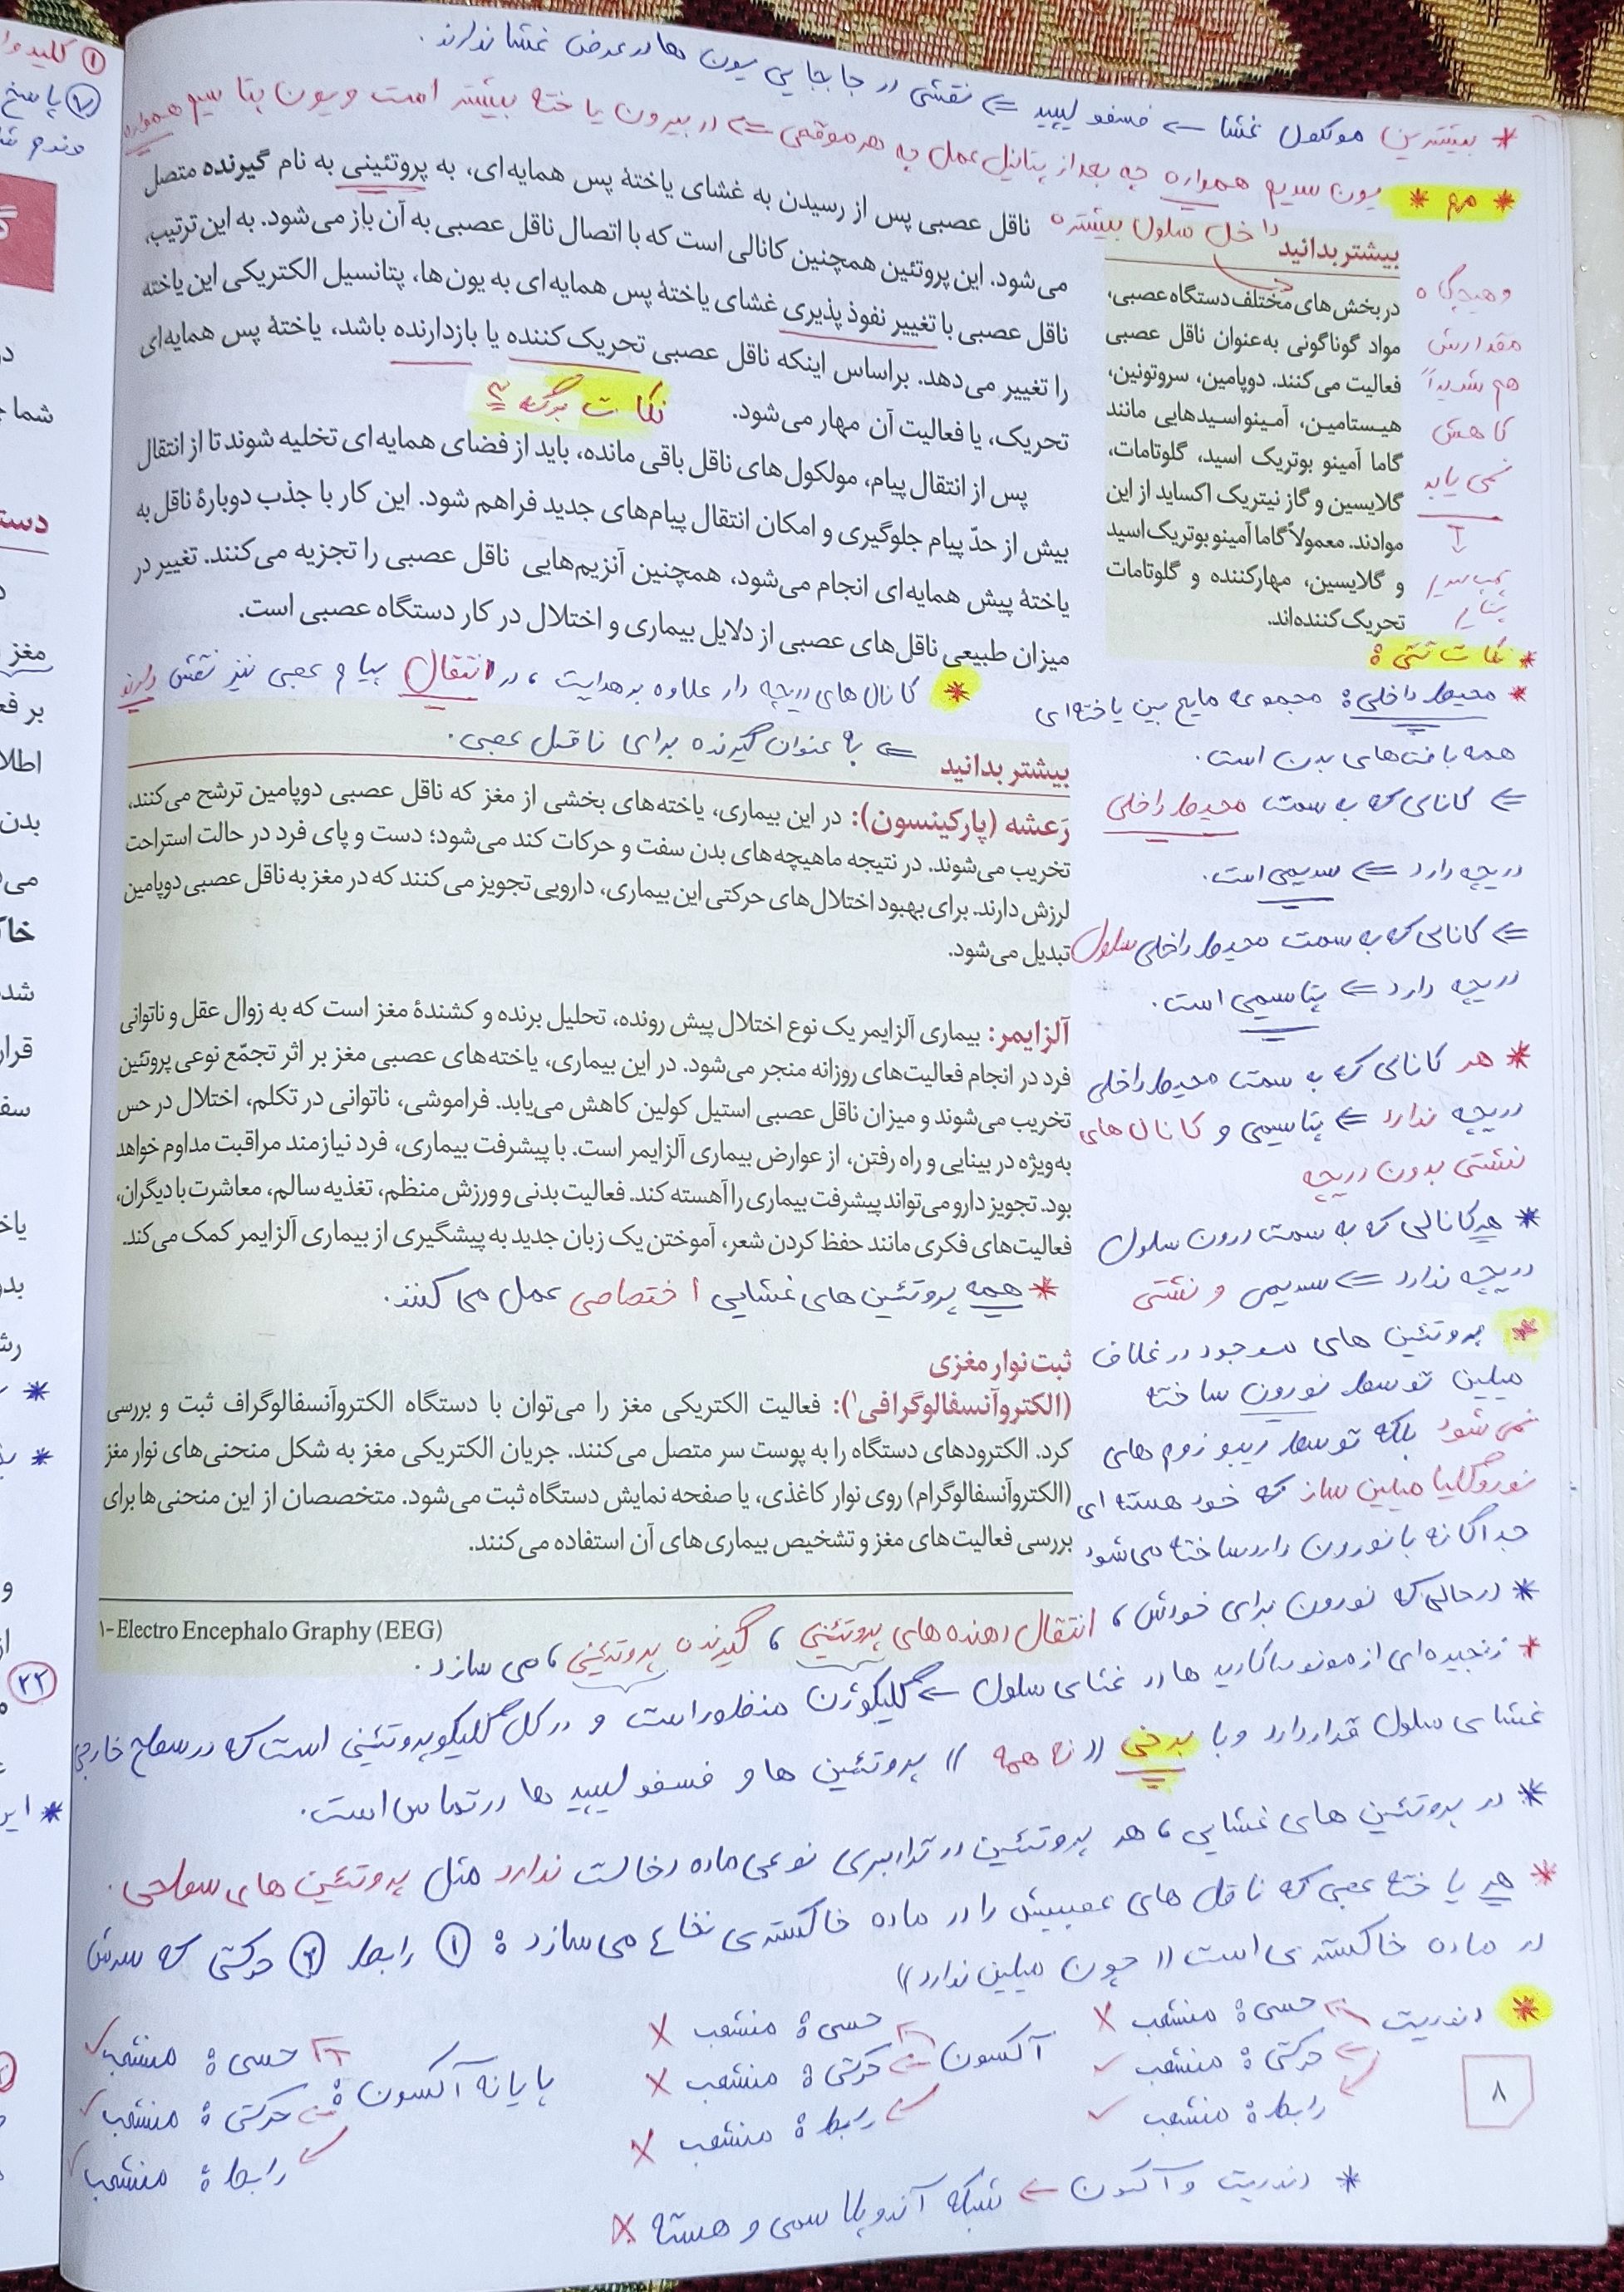 * بیشترین مولکول غشا ← فسفولیپید ⇐ نقشی در جابجایی یون ها در عرض غشا ندارند.
* مهم * یون سدیم همواره چه بعد از پتانیل عمل چه هر موقعی ⇐ در بیرون یاخته بیشتر است و یون پتاسیم همواره
داخل سلول بیشتره
و هیچگاه
مقدارش
هم شدیداً
کاهش
نمی یابد
↓
پمپ سدیم
پتاسیم
ناقل عصبی پس از رسیدن به غشای یاختهٔ پس همایه‌ای، به پروتئینی به نام گیرنده متصل
می‌شود. این پروتئین همچنین کانالی است که با اتصال ناقل عصبی به آن باز می‌شود. به این ترتیب،
ناقل عصبی با تغییر نفوذپذیری غشای یاختهٔ پس همایه‌ای به یون‌ها، پتانسیل الکتریکی این یاخته
را تغییر می‌دهد. براساس اینکه ناقل عصبی تحریک‌کننده یا بازدارنده باشد، یاختهٔ پس همایه‌ای
تحریک، یا فعالیت آن مهار می‌شود.
نکات برگه ۲
پس از انتقال پیام، مولکول‌های ناقل باقی مانده، باید از فضای همایه‌ای تخلیه شوند تا از انتقال
بیش از حدّ پیام جلوگیری و امکان انتقال پیام‌های جدید فراهم شود. این کار با جذب دوبارهٔ ناقل به
یاختهٔ پیش همایه‌ای انجام می‌شود، همچنین آنزیم‌هایی ناقل عصبی را تجزیه می‌کنند. تغییر در
میزان طبیعی ناقل‌های عصبی از دلایل بیماری و اختلال در کار دستگاه عصبی است.
بیشتر بدانید
در بخش‌های مختلف دستگاه عصبی،
مواد گوناگونی به‌عنوان ناقل عصبی
فعالیت می‌کنند. دوپامین، سروتونین،
هیستامین، آمینواسیدهایی مانند
گاما آمینو بوتریک اسید، گلوتامات،
گلایسین و گاز نیتریک اکساید از این
موادند. معمولاً گاما آمینو بوتریک اسید
و گلایسین، مهارکننده و گلوتامات
تحریک‌کننده‌اند.
* کانال های دریچه دار علاوه بر هدایت، در انتقال پیام عصبی نیز نقش دارند
⇐ به عنوان گیرنده برای ناقل عصبی.
* نکات نشتی:
* محیط داخلی: مجموعه مایع بین یاخته‌ای
همه بافت‌های بدن است.
⇐ کانالی که به سمت محیط داخلی
دریچه دارد ⇐ سدیمی است.
⇐ کانالی که به سمت محیط داخلی سلول
دریچه دارد ⇐ پتاسیمی است.
* هر کانالی که به سمت محیط داخلی
دریچه ندارد ⇐ پتاسیمی و کانال های
نشتی بدون دریچه
* هر کانالی که به سمت درون سلول
دریچه ندارد ⇐ سدیمی و نشتی
* پروتئین های موجود در غلاف
میلین توسط نورون ساخته
نمی شود بلکه توسط ریبوزوم های
نوروگلیا میلین ساز که خود هسته ای
جداگانه با نورون دارد ساخته می شود
بیشتر بدانید
رَعشه (پارکینسون): در این بیماری، یاخته‌های بخشی از مغز که ناقل عصبی دوپامین ترشح می‌کنند،
تخریب می‌شوند. در نتیجه ماهیچه‌های بدن سفت و حرکات کند می‌شود؛ دست و پای فرد در حالت استراحت
لرزش دارند. برای بهبود اختلال‌های حرکتی این بیماری، دارویی تجویز می‌کنند که در مغز به ناقل عصبی دوپامین
تبدیل می‌شود.
آلزایمر: بیماری آلزایمر یک نوع اختلال پیش رونده، تحلیل برنده و کشندهٔ مغز است که به زوال عقل و ناتوانی
فرد در انجام فعالیت‌های روزانه منجر می‌شود. در این بیماری، یاخته‌های عصبی مغز بر اثر تجمّع نوعی پروتئین
تخریب می‌شوند و میزان ناقل عصبی استیل کولین کاهش می‌یابد. فراموشی، ناتوانی در تکلم، اختلال در حس
به‌ویژه در بینایی و راه رفتن، از عوارض بیماری آلزایمر است. با پیشرفت بیماری، فرد نیازمند مراقبت مداوم خواهد
بود. تجویز دارو می‌تواند پیشرفت بیماری را آهسته کند. فعالیت بدنی و ورزش منظم، تغذیه سالم، معاشرت با دیگران،
فعالیت‌های فکری مانند حفظ کردن شعر، آموختن یک زبان جدید به پیشگیری از بیماری آلزایمر کمک می‌کند.
* همه پروتئین های غشایی اختصاصی عمل می کنند.
ثبت نوار مغزی
(الکتروآنسفالوگرافی۱): فعالیت الکتریکی مغز را می‌توان با دستگاه الکتروآنسفالوگراف ثبت و بررسی
کرد. الکترودهای دستگاه را به پوست سر متصل می‌کنند. جریان الکتریکی مغز به شکل منحنی‌های نوار مغز
(الکتروآنسفالوگرام) روی نوار کاغذی، یا صفحه نمایش دستگاه ثبت می‌شود. متخصصان از این منحنی‌ها برای
بررسی فعالیت‌های مغز و تشخیص بیماری‌های آن استفاده می‌کنند.
۱- Electro Encephalo Graphy (EEG)
* در حالی که نورون برای خودش، انتقال دهنده های پروتئینی، گیرنده پروتئینی، می سازد.
* زنجیره‌ای از مونوساکارید ها در غشای سلول ← گلیکوژن منظور است و در کل گلیکوپروتئینی است که در سطح خارجی
غشای سلول قرار دارد و با برخی (( نه همه )) پروتئین ها و فسفولیپید ها در تماس است.
* در پروتئین های غشایی، هر پروتئین در ترابری نوعی ماده دخالت ندارد مثل پروتئین های سطحی.
* هر یاخته عصبی که ناقل های عصبیش را در ماده خاکستری نخاع می سازد: ① رابط ② حرکتی که سرش
در ماده خاکستری است (( چون میلین ندارد ))
* دندریت ← حسی: منشعب ✗
← حرکتی: منشعب ✓
← رابط: منشعب ✓
آکسون ← حسی: منشعب ✗
← حرکتی: منشعب ✗
← رابط: منشعب ✗
پایانه آکسون: ← حسی: منشعب ✓
← حرکتی: منشعب ✓
← رابط: منشعب ✓
* دندریت و آکسون ← شبکه آندوپلاسمی و هسته ✗
۸
① کلید
② پاسخ
دست
شما
مغز
بر
بدن
خا
قرار
۲۲